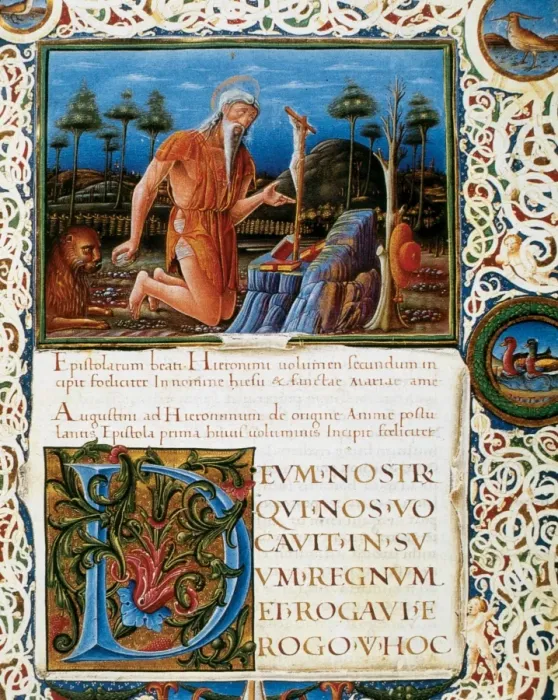 Epistolarum beati Hieronimi uolumen secundum in
cipit foeliciter In nomine hiesu & sanctae mariae ame
Augustini ad Hieronimum de origine Anime postu
lantis Epistola prima huius uoluminis Incipit foeliciter
DEVM·NOSTR·
QVI·NOS·VO
CAVIT·IN·SV
VM·REGNVM
ET·ROGAVI·E
ROGO·V·HOC